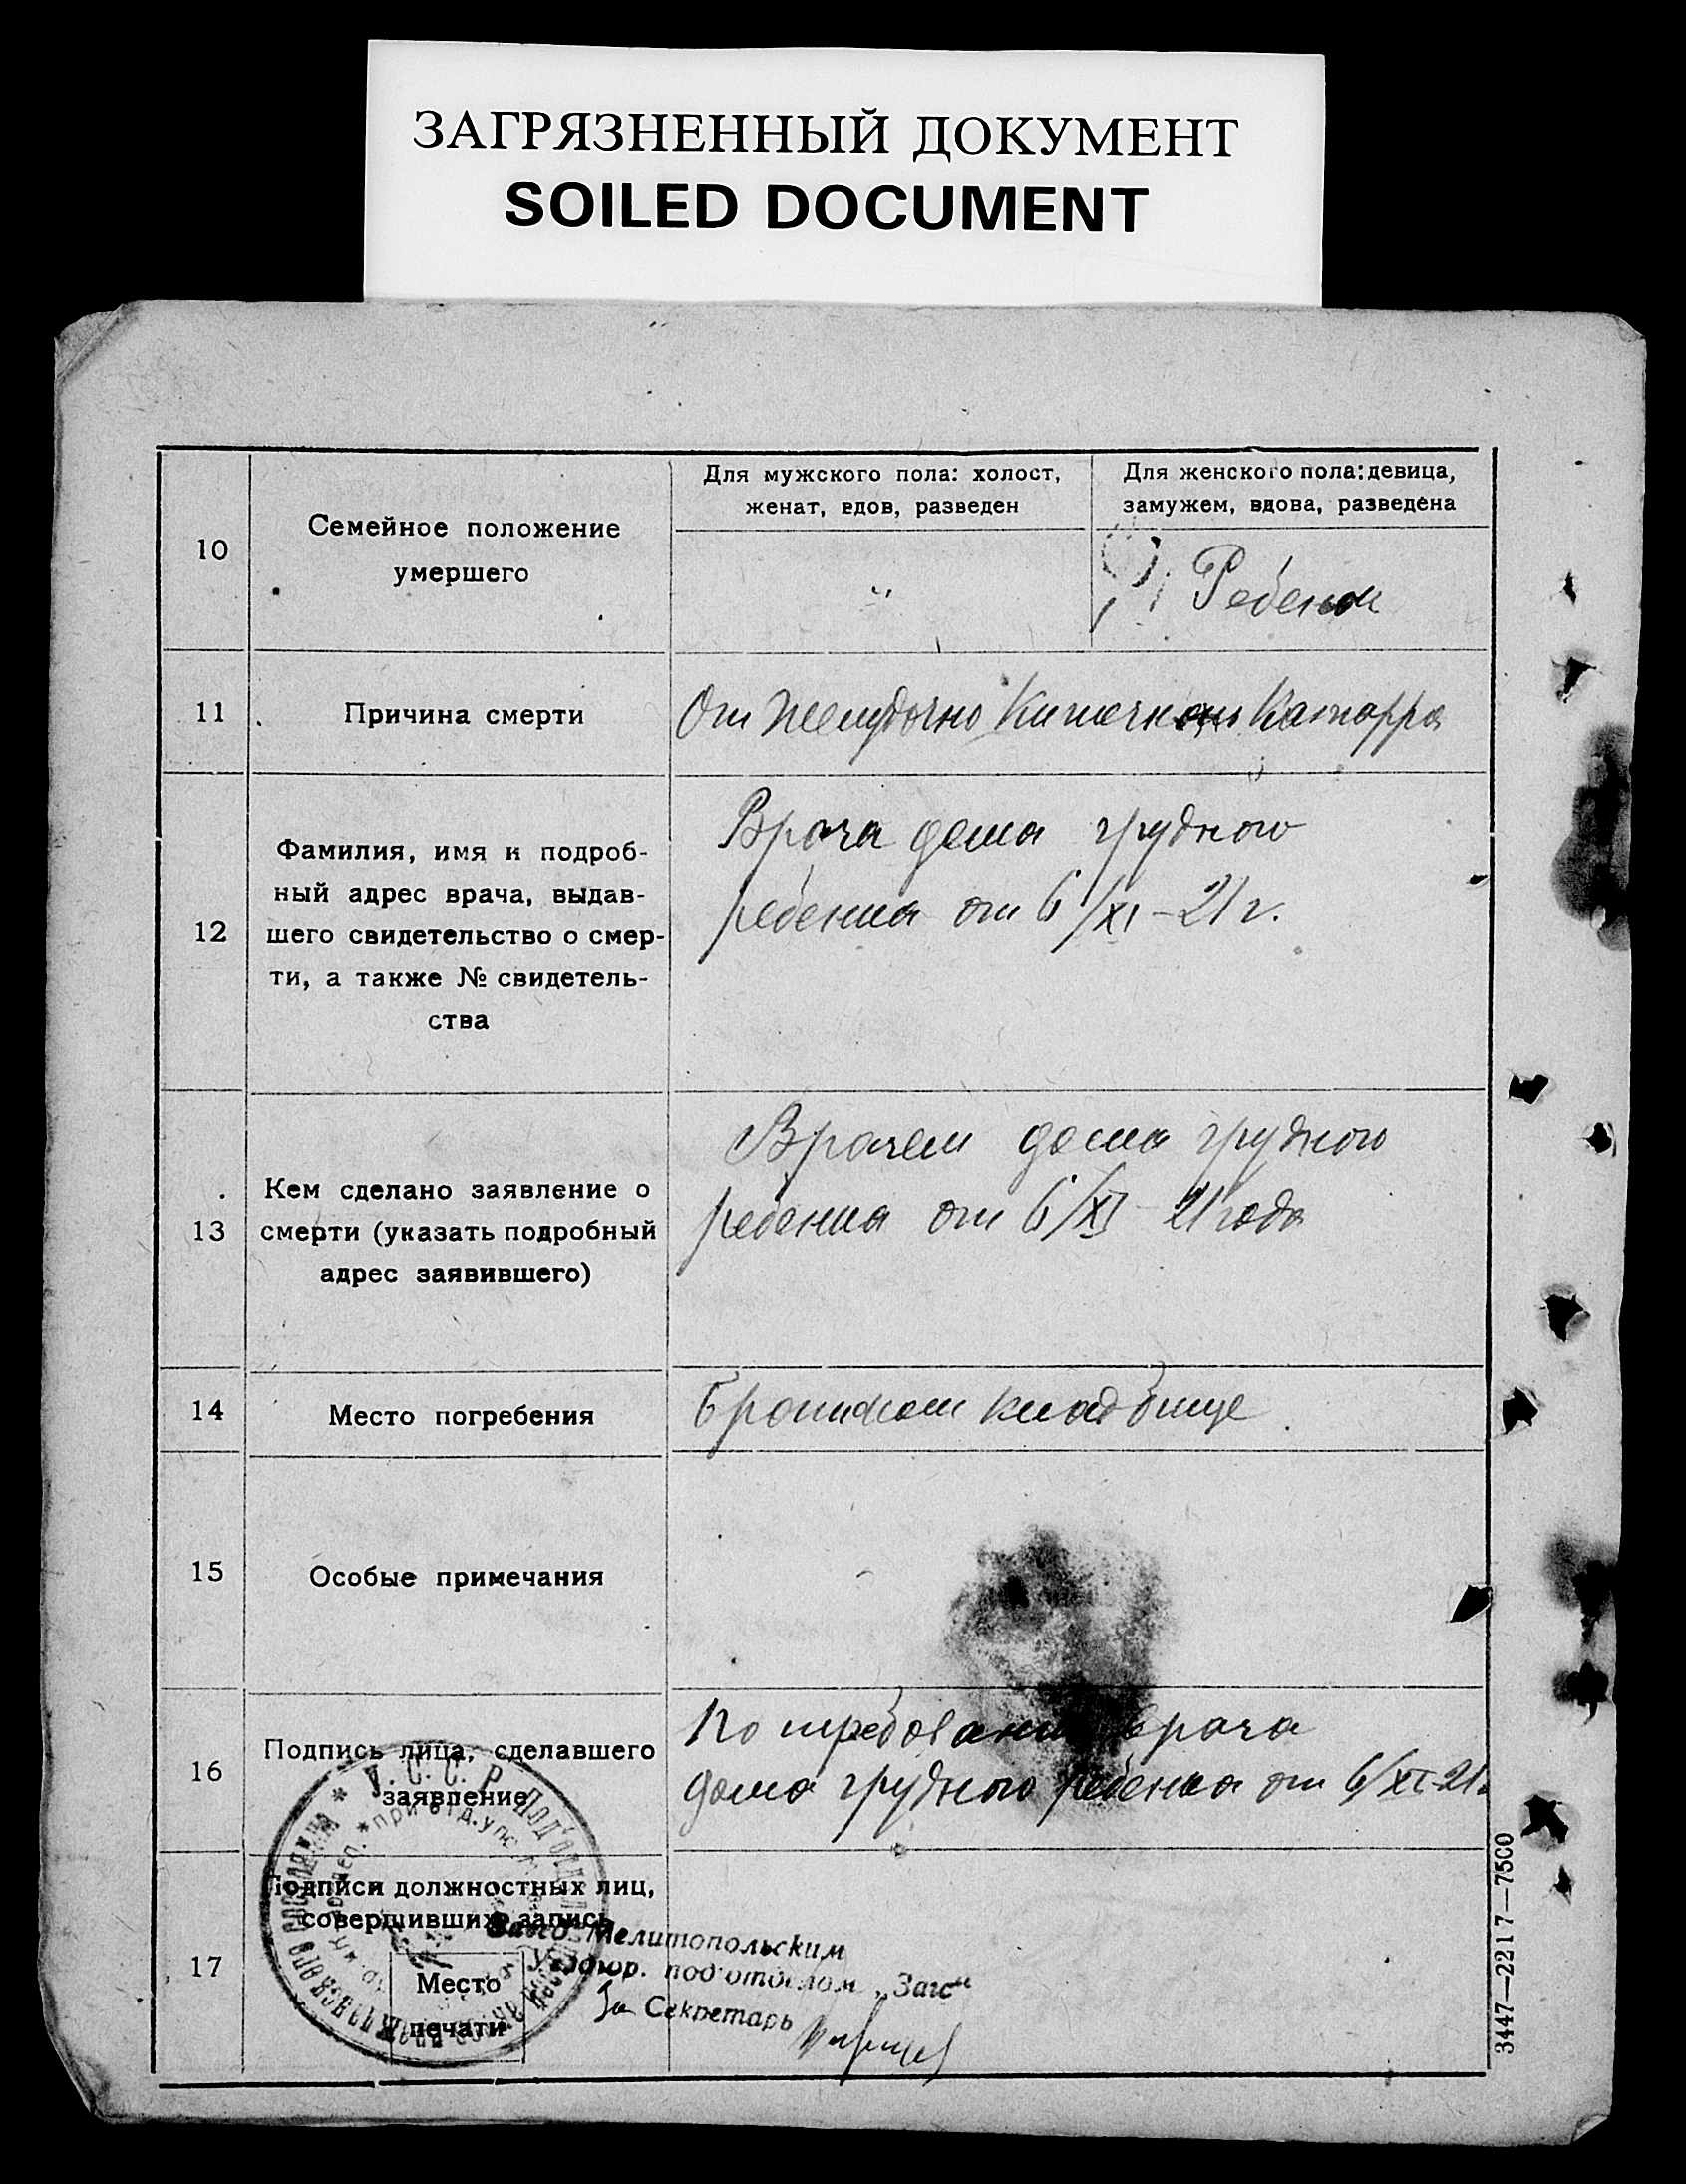 ЗАГРЯЗНЕННЫЙ ДОКУМЕНТ
SOILED DOCUMENT
10
Семейное положение
умершего
Для мужского пола: холост,
женат, вдов, разведен
"
Для женского пола: девица,
замужем, вдова, разведена
Ребенок
11
Причина смерти
От Желудочно Кишечного Катарра
12
Фамилия, имя и подроб-
ный адрес врача, выдав-
шего свидетельство о смер-
ти, а также № свидетель-
ства
Врача дома грудного
ребенка от 6/XI-21 г.
13
Кем сделано заявление о
смерти (указать подробный
адрес заявившего)
Врачем дома грудного
ребенка от 6/XI 21 года
14
Место погребения
кладбище
15
Особые примечания
16
Подпись лица, сделавшего
заявление
По требованию врача
дома грудного ребенка от 6/XI-21
17
Подписи должностных лиц,
совершивших запись
Место
печати
У.С.С.Р. Под'отдел
Завед. Мелитопольским
под'отделом „Загс"
За Секретарь
3447—2217—7500